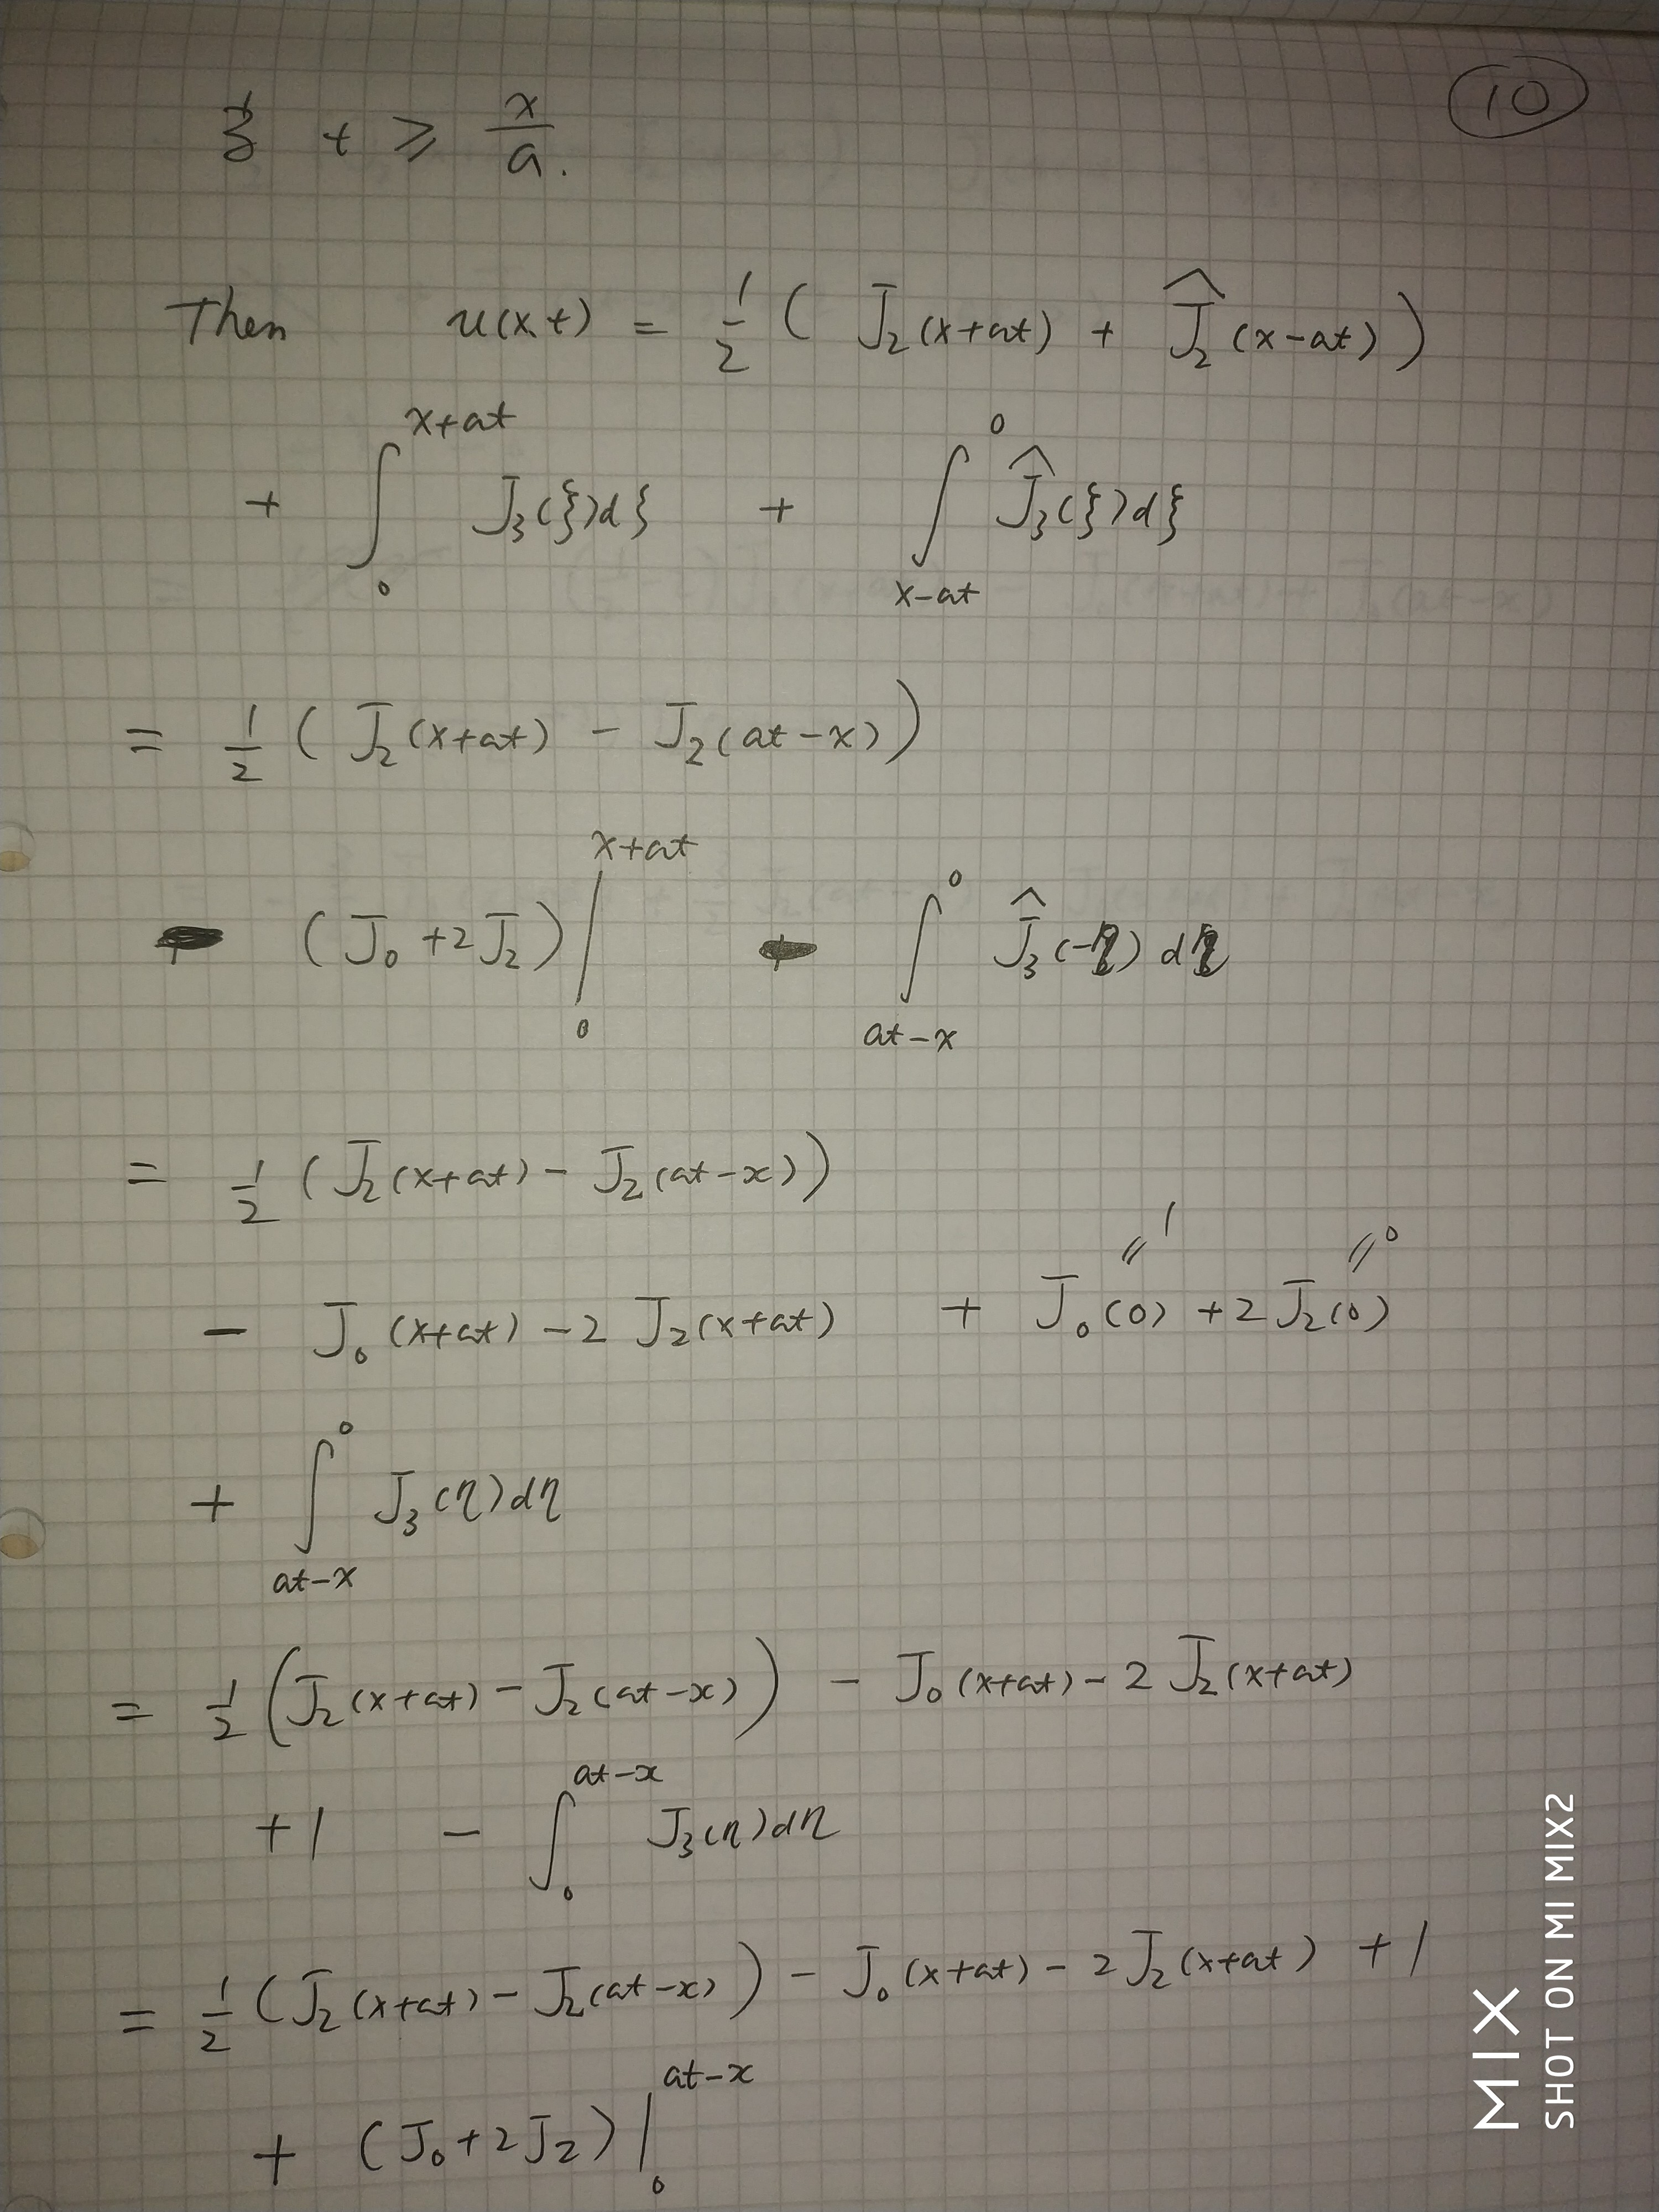 10
t ≥ x/a.
Then u(x,t) = 1/2 ( J₂(x+at) + Ĵ₂(x-at) )
+ ∫₀^{x+at} J₃(ξ)dξ + ∫_{x-at}^0 Ĵ₃(ξ)dξ
= 1/2 ( J₂(x+at) - J₂(at-x) )
- (J₀ + 2J₂) |₀^{x+at} - ∫_{at-x}^0 Ĵ₃(-η) dη
= 1/2 ( J₂(x+at) - J₂(at-x) )
- J₀(x+at) - 2 J₂(x+at) + J₀(0) + 2 J₂(0)
〃1 〃0
+ ∫_{at-x}^0 J₃(η)dη
= 1/2 ( J₂(x+at) - J₂(at-x) ) - J₀(x+at) - 2 J₂(x+at)
+ 1 - ∫₀^{at-x} J₃(η)dη
= 1/2 ( J₂(x+at) - J₂(at-x) ) - J₀(x+at) - 2 J₂(x+at) + 1
+ (J₀ + 2J₂) |₀^{at-x}
MIX
SHOT ON MI MIX2